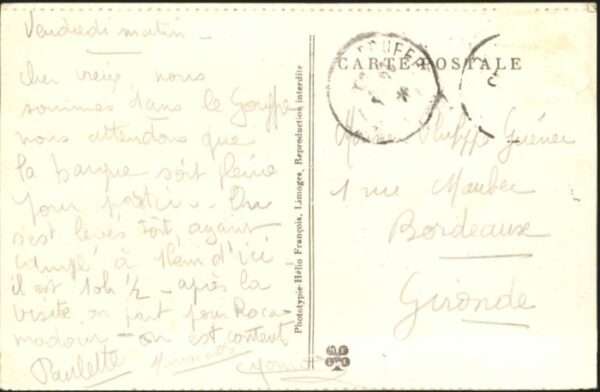 Vendredi matin -
Cher vieux nous
sommes dans le Gouffre
nous attendons que
la barque soit pleine
pour partir - On
s'est levés tôt, ayant
campé à 1km d'ici
il est 10h 1/2 - après la
visite on part pour Roca-
madour - on est contents
Paulette
Phototypie Hélio François, Limoges, Reproduction interdite
CARTE POSTALE
Philippe
1 rue Maubec
Bordeaux
Gironde